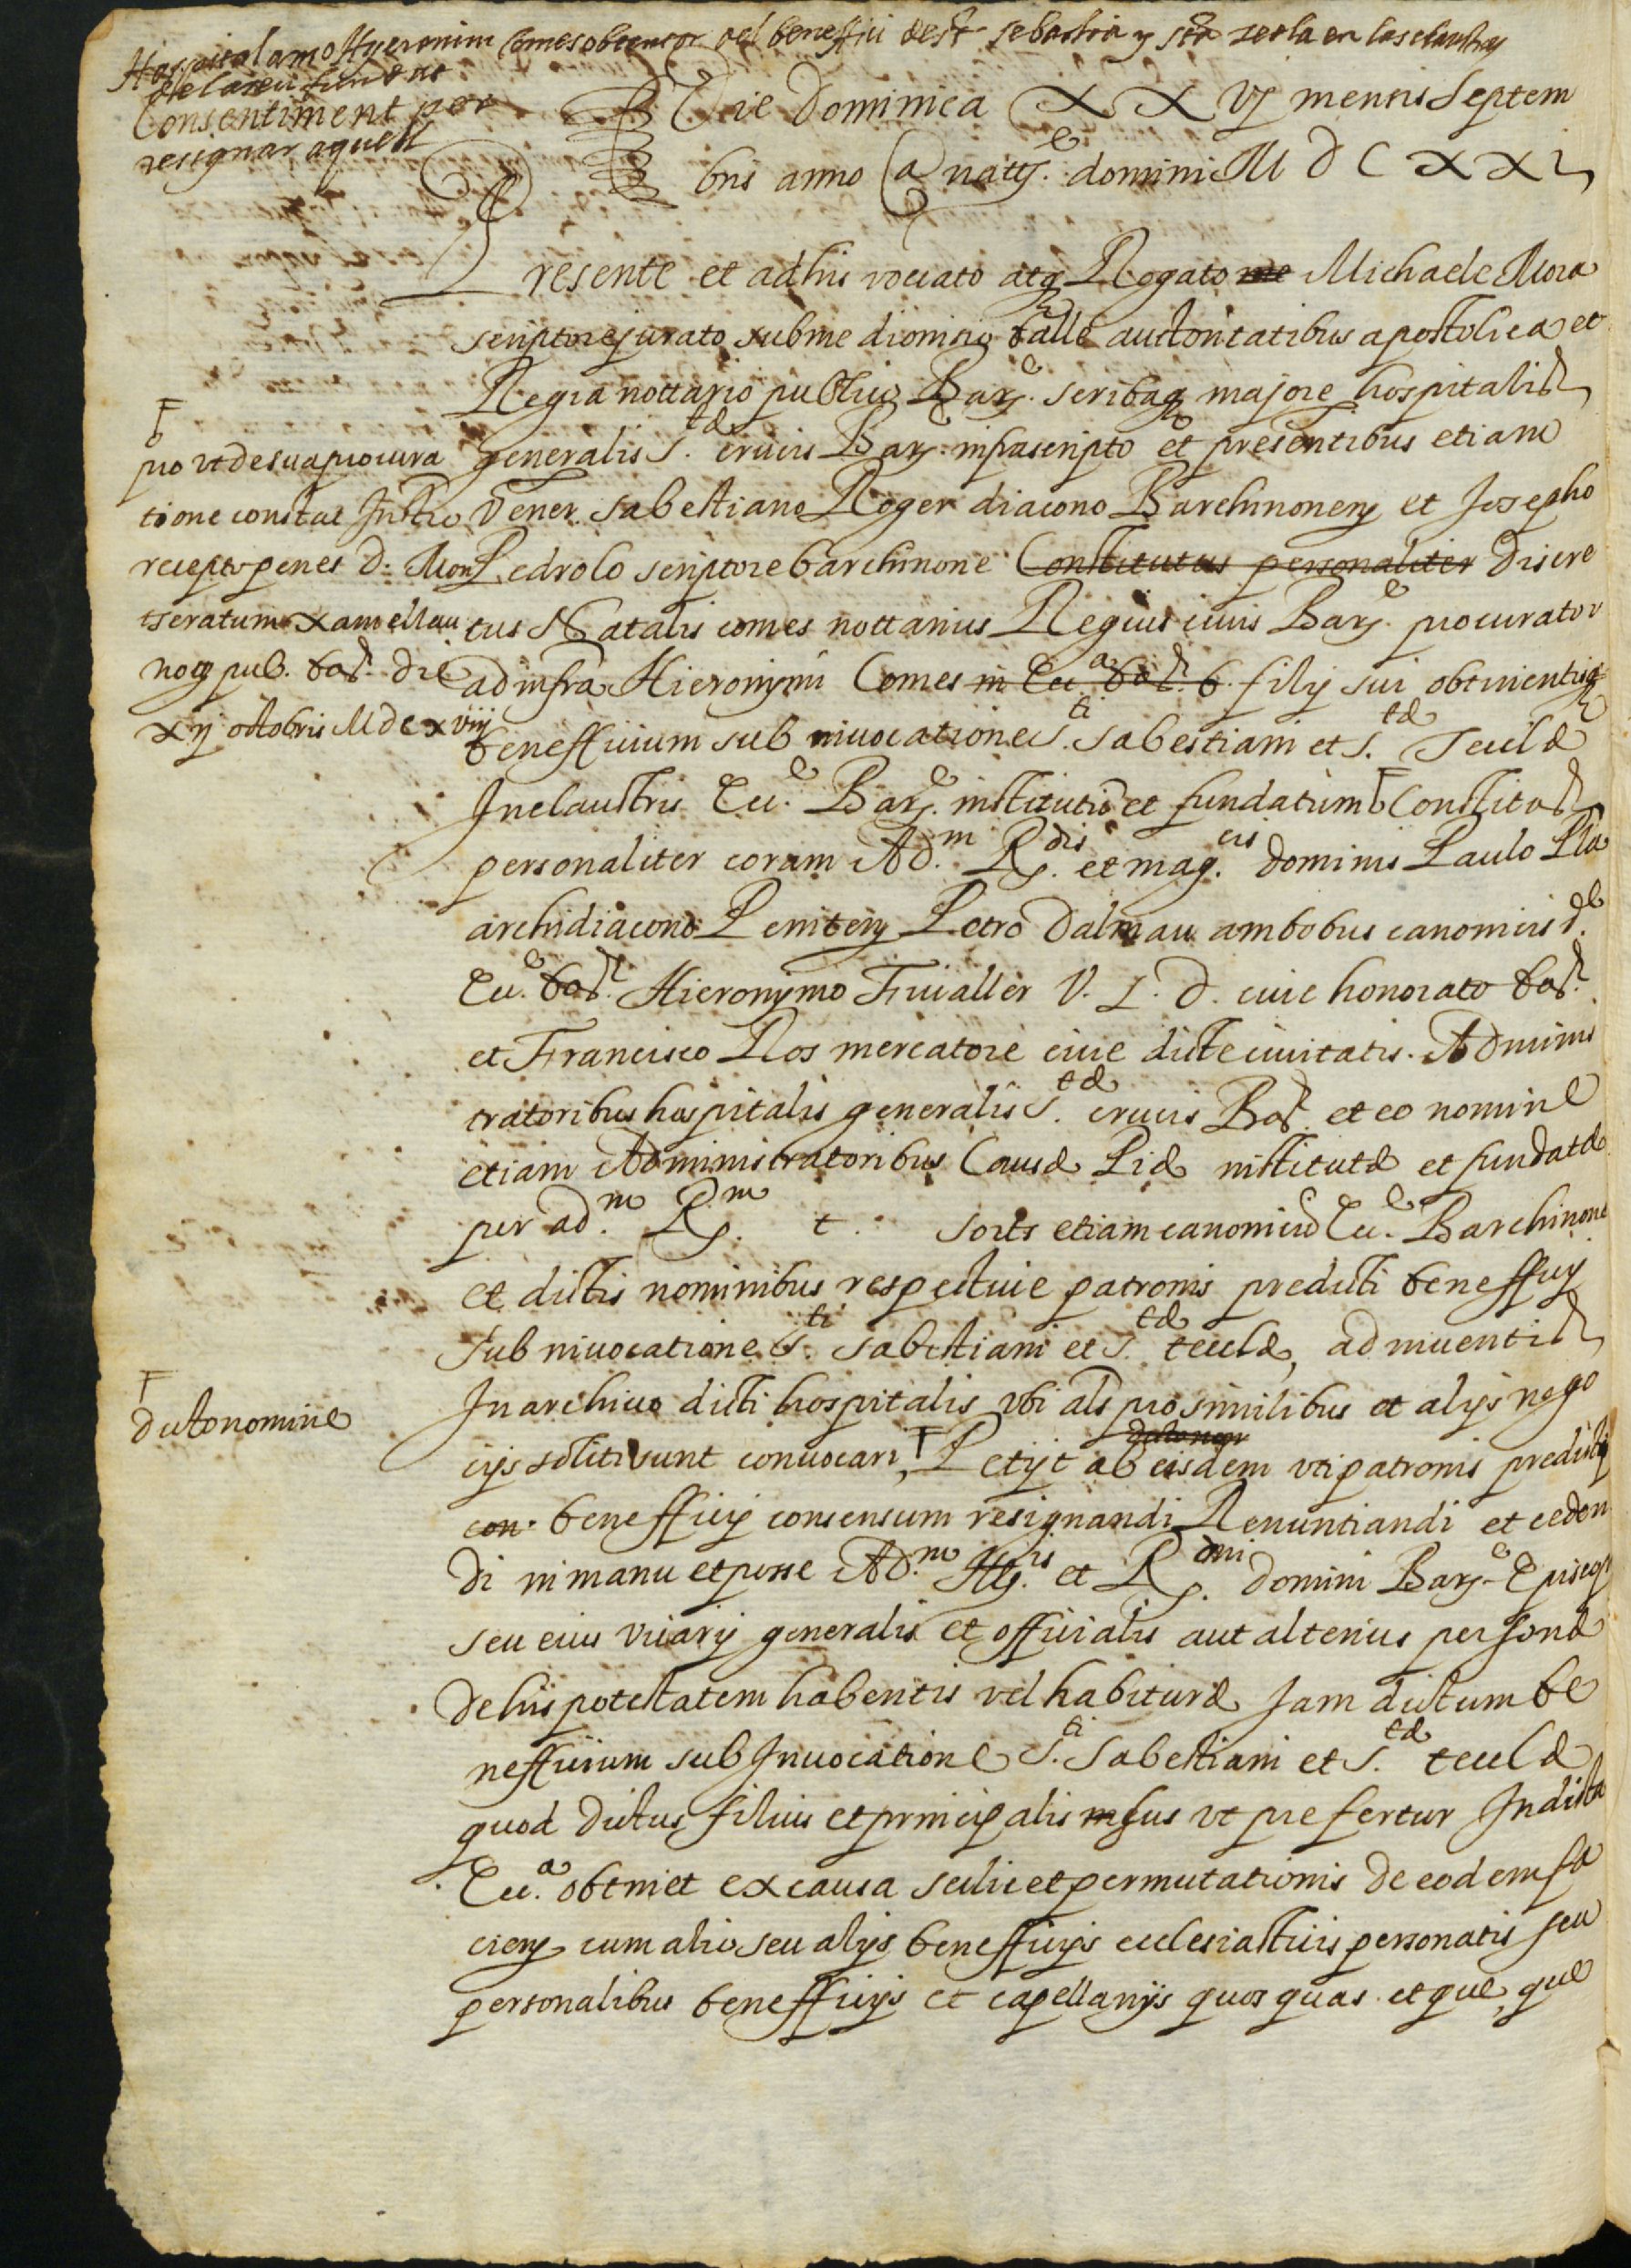 Hospital a mo Hyeronim Comes obtentor del beneffici de st sebastia y sta tecla en las claustras
de la seu
Consentiment per
resignar aquell
Die Dominica XXVj mensis Septem
bris anno a natte. domini M D C XXj
Presente et ad his vocato atq Rogato me Michaele Mora
scriptore jurato sub me dionisio valle auctoritatibus apostolica et
Regia nottario publico Barne. scribaq majore hospitalis
generalis S.tæ crucis Barne. infrascripto et presentibus etiam
Vener. Sabestiano Roger diacono Barchinonen et Josepho
Pedrolo scriptore barchinone Constitutus personaliter Discre
tus Natalis comes nottarius Regius civis Barne. procurator
ad infra Hieronymi Comes in Eccla. bar. b. filij sui obtinentis
beneffitium sub invocatione S.ti Sabestiani et S.tæ Teclæ
In claustris Ecce. Barne. institutu et fundatum Constitus
personaliter coram Ad.m R.dis et mag.cis dominis Paulo Pla
archidiacono Peniten Petro Dalmau ambobus canonicis dæ.
Ecce. bar. Hieronymo Fivaller V. J. D. cive honorato bar.
et Francisco Ros mercatore cive dicte civitatis. Adminis
tratoribus hospitalis generalis S.tæ crucis Bar. et eo nomine
etiam Administratoribus Causæ Piæ institutæ et fundatæ
per ad.m R.m t. sorts etiam canonicu Ecce. Barchinone
et dictis nominibus respective patronis predicti beneffitij
sub invocatione S.ti Sabestiani et S.tæ teclæ, ad inventis
In archivo dicti hospitalis vbi als pro similibus et alijs nego
cijs soliti sunt convocari, Petijt ab eisdem vti patronis predicti
dicto nomi
con. beneffitij consensum resignandi Renuntiandi et ceden
di in manu et posse Ad.m Ill.is et R.mi domini Barne. Episcopi
seu eius vicarij generalis et offitialis aut alterius personæ
de his potestatem habentis vel habituræ Jam dictum be
neffitium sub Invocatione S.ti Sabestiani et S.tæ teclæ
quod dictus filius et principalis m suus vt prefertur In dicta
Ecca. obtinet ex causa scilicet permutationis de eodem fa
cien cum alio seu alijs beneffitijs ecclesiasticis personatis seu
personalibus beneffitijs et capellanijs quos quas et que, que
pro vt de sua procura
tione constat Instro
recepto penes D. Mon
tserratum Xamellau
noq pub. bar. die
xij octobris MDCxviij
dicto nomine